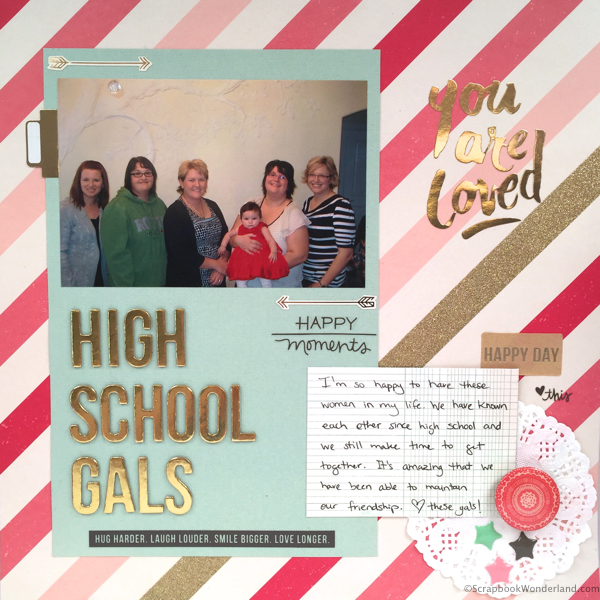 you
are
loved
HIGH
SCHOOL
GALS
HAPPY
moments
HAPPY DAY
this
I'm so happy to have these
women in my life. We have known
each other since high school and
we still make time to get
together. It's amazing that we
have been able to maintain
our friendship. ♡ these gals!
HUG HARDER. LAUGH LOUDER. SMILE BIGGER. LOVE LONGER.
©ScrapbookWonderland.com